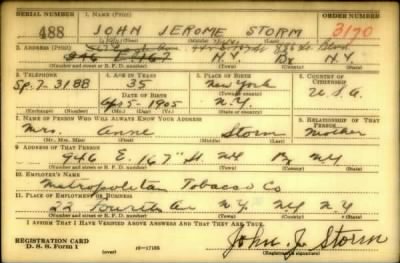 SERIAL NUMBER 1. NAME (Print) ORDER NUMBER
488 JOHN JEROME STORM 3170
(First) (Middle) (Last)
2. ADDRESS (Print)
946 E. 167 N.Y. Bx N.Y.
(Number and street or R. F. D. number) (Town) (County) (State)
3. TELEPHONE 4. AGE IN YEARS 5. PLACE OF BIRTH 6. COUNTRY OF CITIZENSHIP
Sp. 7-3188 35 New York U.S.A.
DATE OF BIRTH (Town or county)
Apr 5-1905 N.Y.
(Exchange) (Number) (Mo.) (Day) (Yr.) (State or country)
7. NAME OF PERSON WHO WILL ALWAYS KNOW YOUR ADDRESS 8. RELATIONSHIP OF THAT PERSON
Mrs. Anne Storm Mother
(Mr., Mrs., Miss) (First) (Middle) (Last)
9. ADDRESS OF THAT PERSON
946 E. 167 St. NY Bx NY
(Number and street or R. F. D. number) (Town) (County) (State)
10. EMPLOYER'S NAME
Metropolitan Tobacco Co
11. PLACE OF EMPLOYMENT OR BUSINESS
22 Av N.Y. NY N.Y
(Number and street or R. F. D. number) (Town) (County) (State)
I AFFIRM THAT I HAVE VERIFIED ABOVE ANSWERS AND THAT THEY ARE TRUE.
REGISTRATION CARD
D. S. S. Form 1 (over) 16-17105 John J. Storm
(Registrant's signature)